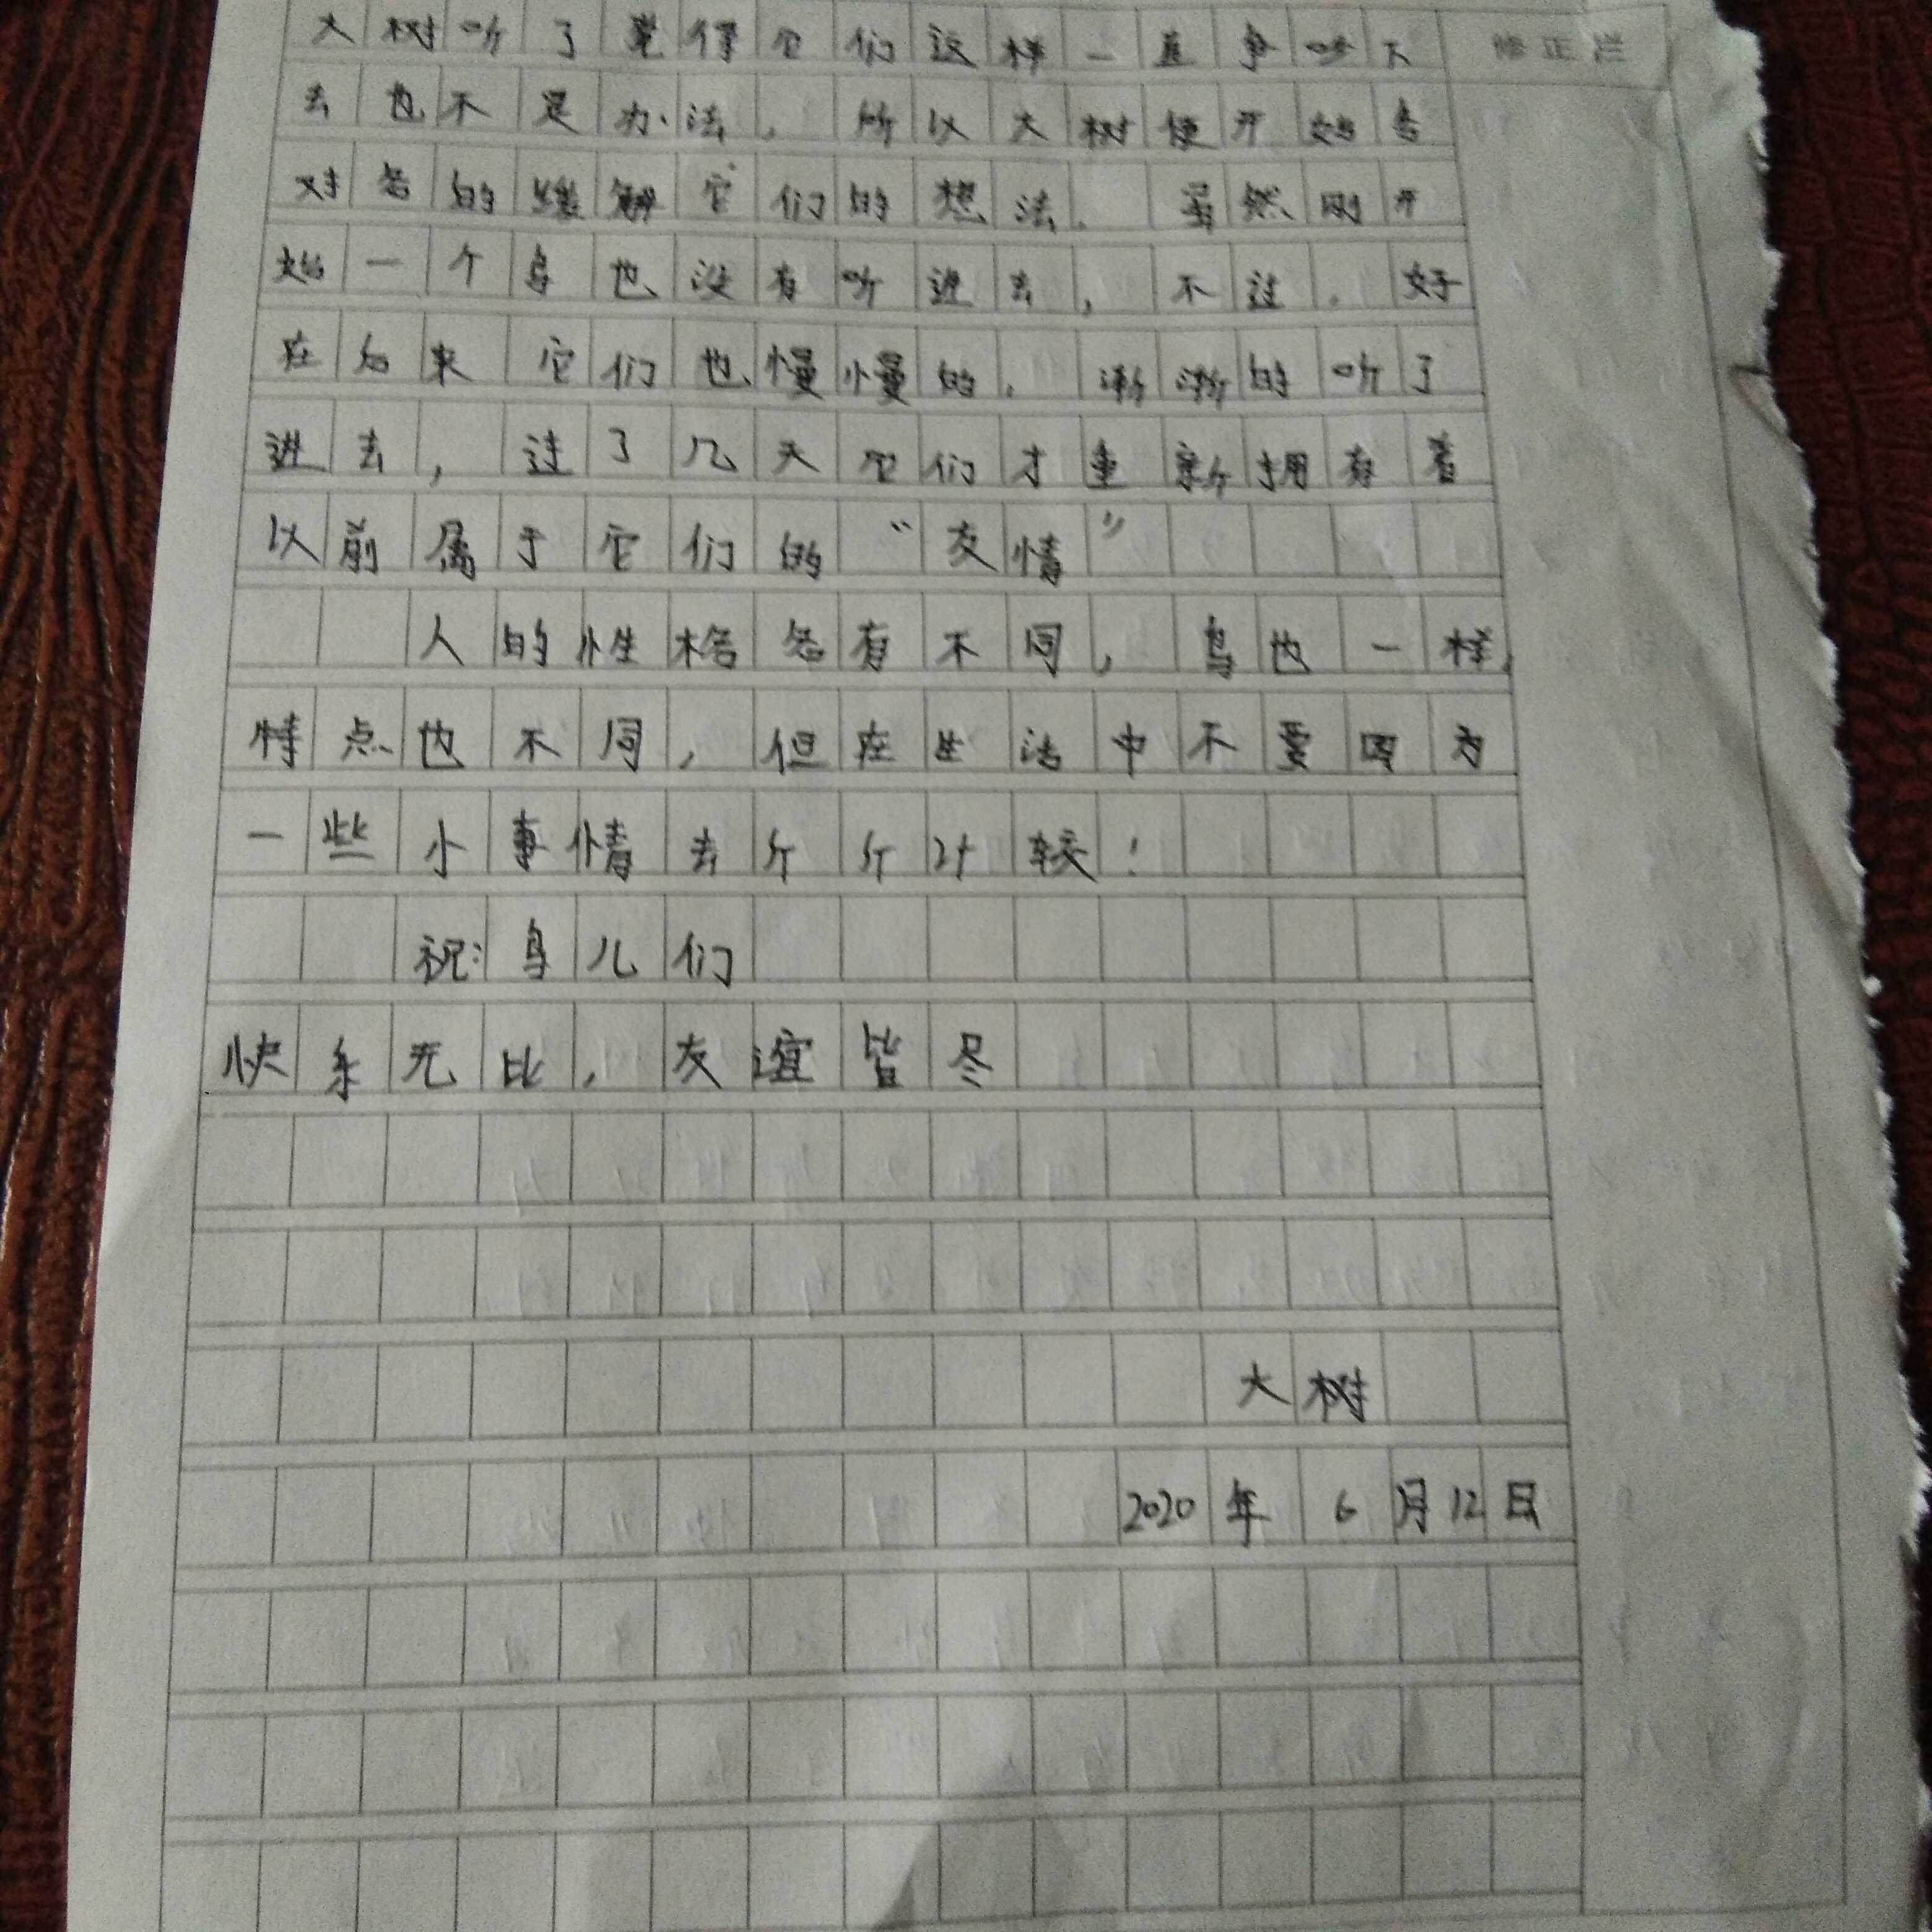 大树听了觉得它们这样一直争吵下
修正栏
去也不是办法,所以大树便开始
对各的缓解它们的想法.虽然刚开
始一个鸟也没有听进去,不过.好
在后来它们也慢慢的.渐渐的听了
进去,过了几天它们才重新拥有着
以前属于它们的“友情”
人的性格各有不同,鸟也一样,
特点也不同,但在生活中不要因为
一些小事情去斤斤计较!
祝:鸟儿们
快乐无比,友谊皆尽
大树
2020年6月12日